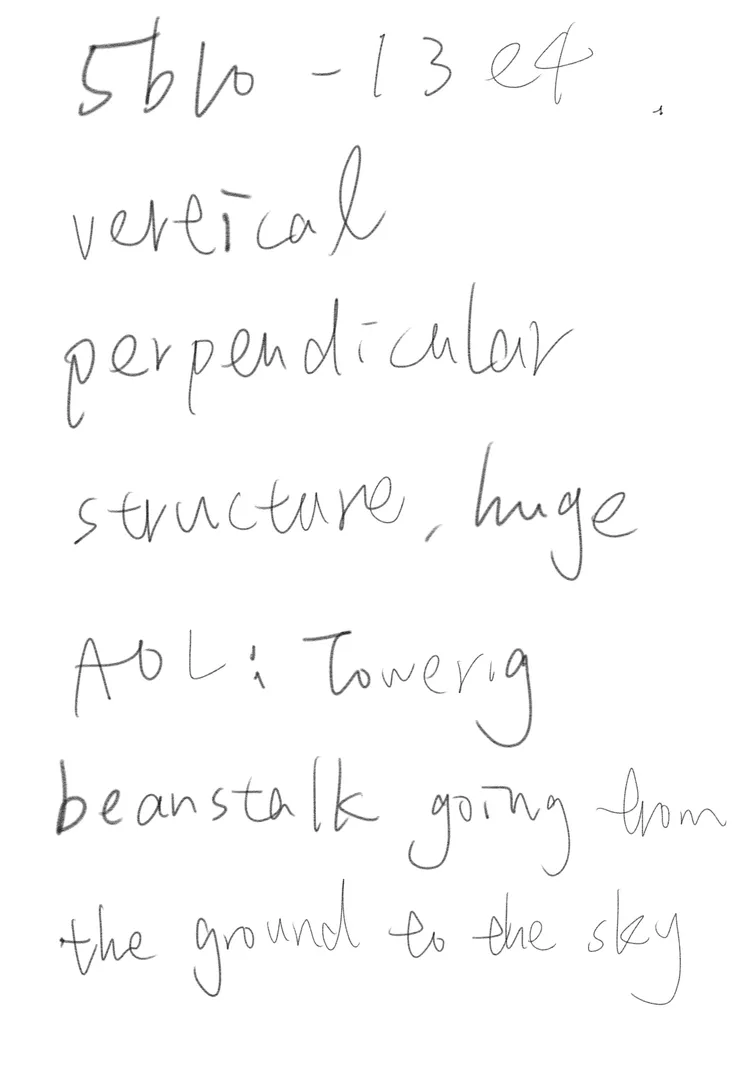 5b10-13e4
vertical
perpendicular
structure, huge
AOL: Towerig
beanstalk going from
the ground to the sky